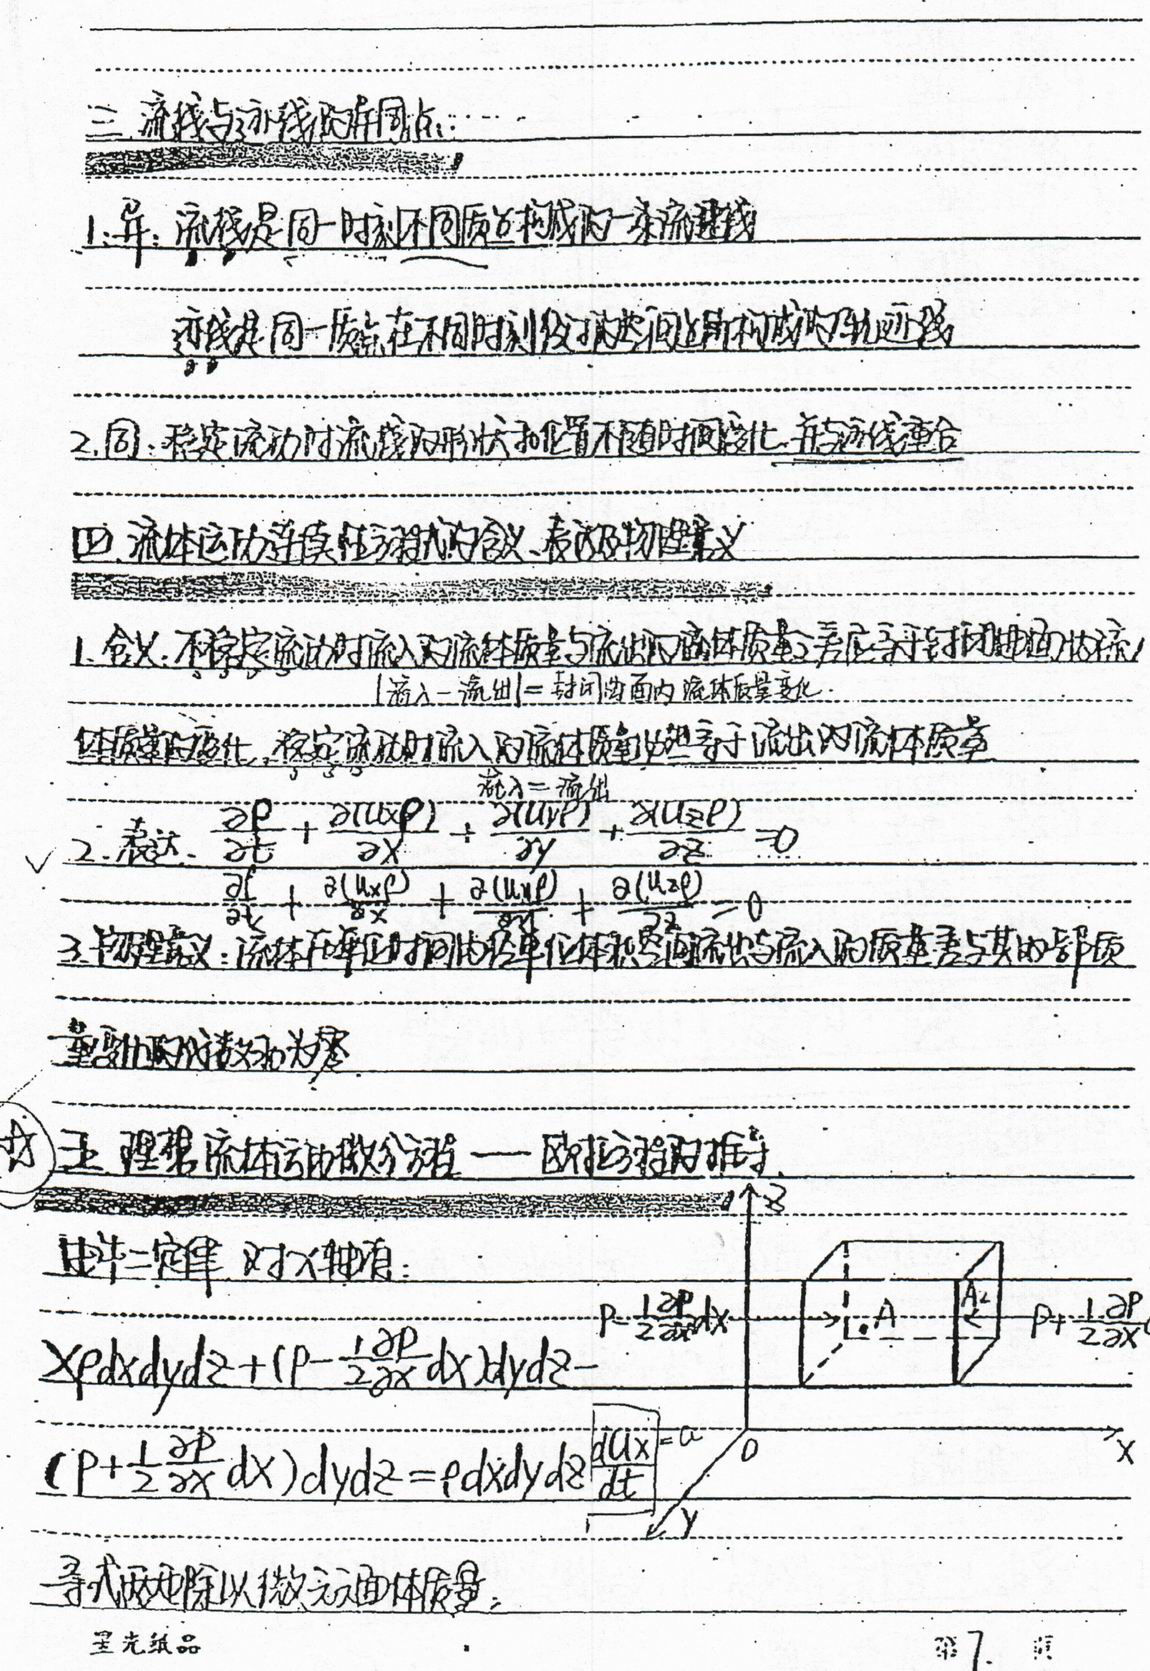 三 流线与迹线的异同点:
1. 异: 流线是同一时刻不同质点构成的一条流速线
迹线是同一质点在不同时刻 所构成的轨迹线
2. 同: 稳定流动时流线的形状和位置不随时间变化、并与迹线重合
四、流体运动连续性方程式的含义、表达及物理意义
1. 含义: 不稳定流动时流入的流体质量与流出的流体质量之差应等于封闭曲面内流
|流入-流出|=封闭曲面内流体质量变化.
体质量的变化,稳定流动时流入的流体质量必然等于流出的流体质量
流入=流出
2. 表达. ∂ρ/∂t + ∂(Uxρ)/∂x + ∂(Uyρ)/∂y + ∂(Uzρ)/∂z =0
∂ρ/∂t + ∂(Uxρ)/∂x + ∂(Uyρ)/∂y + ∂(Uzρ)/∂z =0
3. 物理意义: 流体在单位时间内经单位体积空间流出与流入的质量差与其内部质
量变化的代数和为零
☆ 五. 理想流体运动微分方程 —— 欧拉方程的推导.
Z
由牛二定律 对X轴有:
P-1/2 ∂P/∂x dx A A2 P+1/2 ∂P/∂x
Xρdxdydz+(P-1/2 ∂P/∂x dx)dydz-
(P+1/2 ∂P/∂x dx)dydz=ρdxdydz dUx/dt =a
O X
Y
等式两边除以微元六面体质量:
星光纸品 第7.页